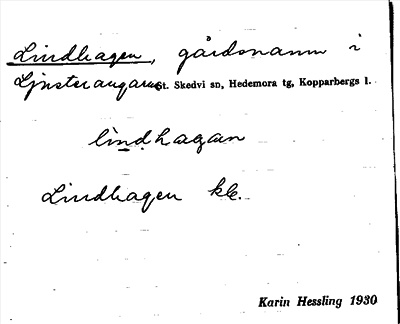 Lindhagen, gårdsnamn i
Ljusterangarne St. Skedvi sn, Hedemora tg, Kopparbergs l.
lìndhagan
Lindhagen kb.
Karin Hessling 1930